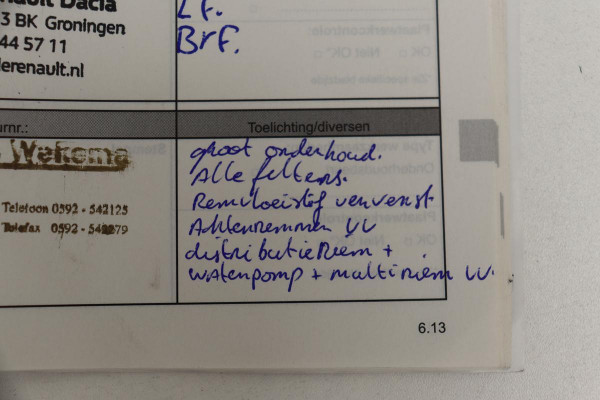 nault Dacia
3 BK Groningen
44 57 11
erenault.nl
Lf.
Brf.
urnr.:
Toelichting/diversen
Wekema
Telefoon 0592 - 542125
Telefax 0592 - 542279
groot onderhoud.
Alle filters.
Remvloeistof ververst
Achterremmen VV
distributieriem +
waterpomp + multiriem VV.
6.13